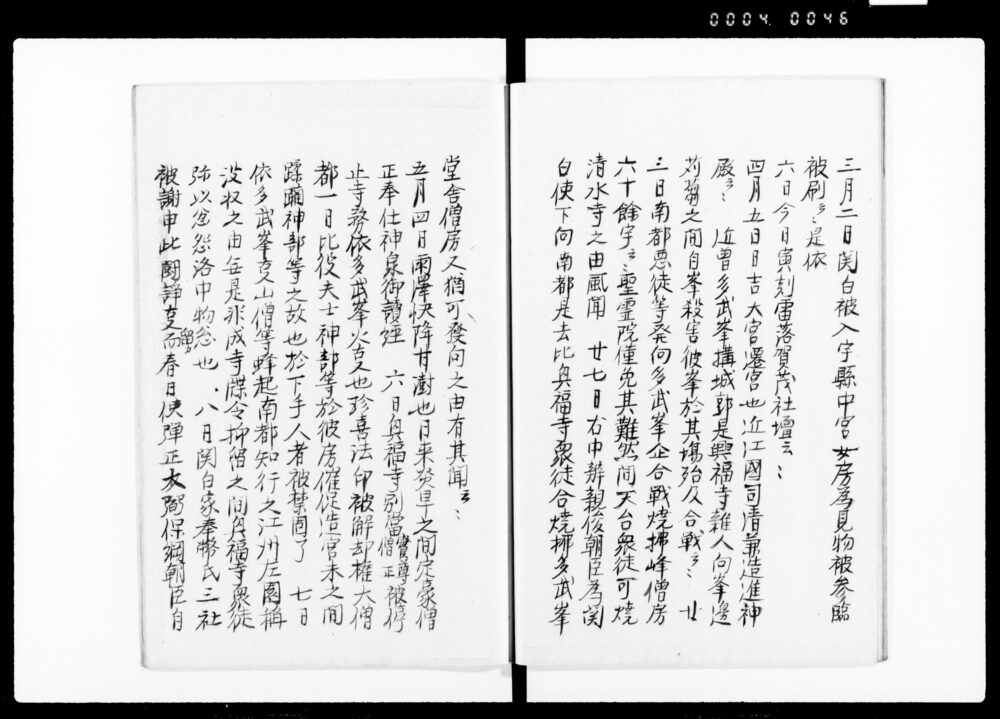 0004 0046
三月二日関白被入宇縣中宮女房為見物被参臨
被刷云々是依
六日今日寅刻雷落賀茂社壇云々
四月五日日吉大宮遷宮也近江國司清兼造進神
殿云々 近曽多武峯搆城郭是興福寺雜人向峯邊
苅蒭之間自峯殺害彼峯於其場殆及合戰云々 廿
三日南都悪徒等発向多武峯企合戦焼拂峰僧房
六十餘宇云々聖霊院僅免其難然間天台衆徒可焼
清水寺之由風聞 廿七日右中辨親俊朝臣為関
白使下向南都是去比興福寺衆徒合焼拂多武峯
堂舎僧房又猶可發向之由有其聞云々
五月四日雨澤快降甘澍也日来炎旱之間定豪僧
正奉仕神泉御讀経 六日興福寺別當僧正實尊被停
止寺務依多武峯火事也珎喜法印被解却権大僧
都一日比役夫士神部等於彼房催促造宮未之間
蹂躙神部等之故也於下手人者被禁固了 七日
依多武峯事山僧等蜂起南都知行之江州庄園稱
没収之由無是非成寺牒令抑留之間興福寺衆徒
弥以忿怨洛中物忩也、 八日関白家奉幣氏三社
被謝申此闘諍事而春日使勢弾正大弼保綱朝臣自